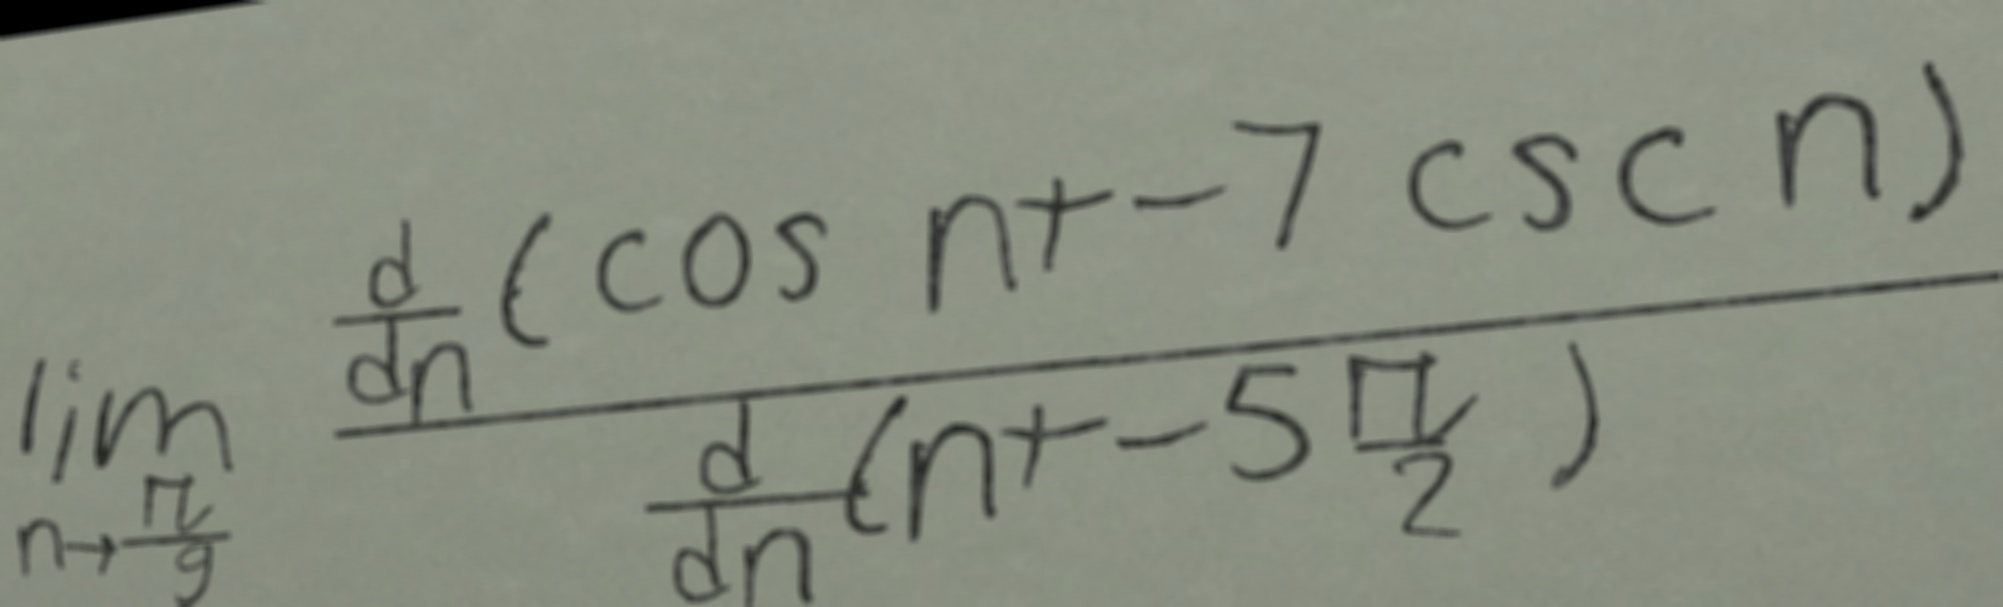 \lim_{n \to \frac{\pi}{9}} \frac{\frac{d}{dn}(\cos n + -7 \csc n)}{\frac{d}{dn}(n + -5 \frac{\pi}{2})}